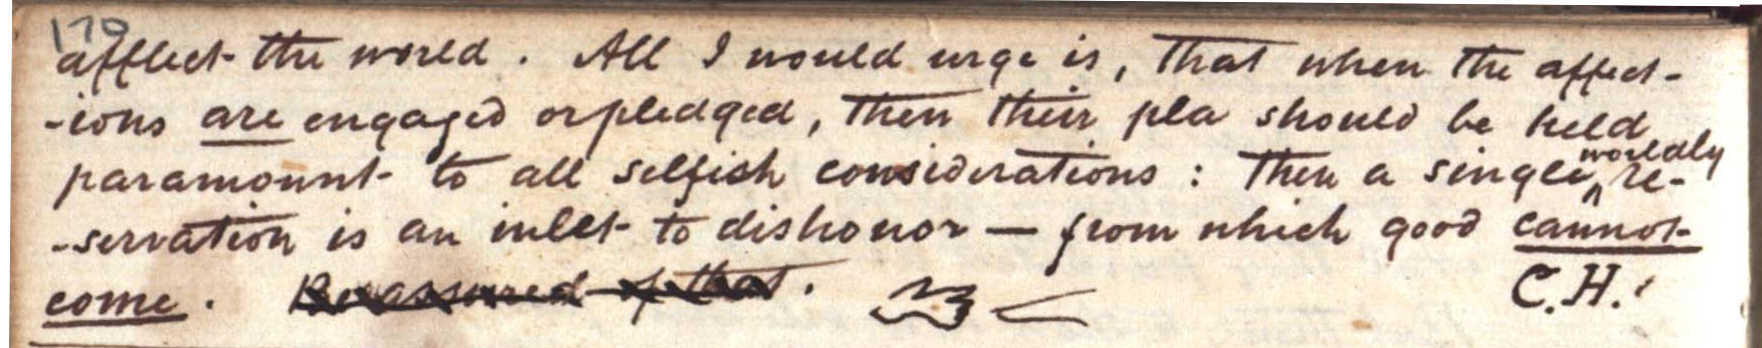 170
afflict the world. All I would urge is, that when the affect-
-ions are engaged or pledged, then their pla should be held
paramount to all selfish considerations: then a single worldly re-
-servation is an inlet to dishonor — from which good cannot
come. Be assured of that.
C.H.